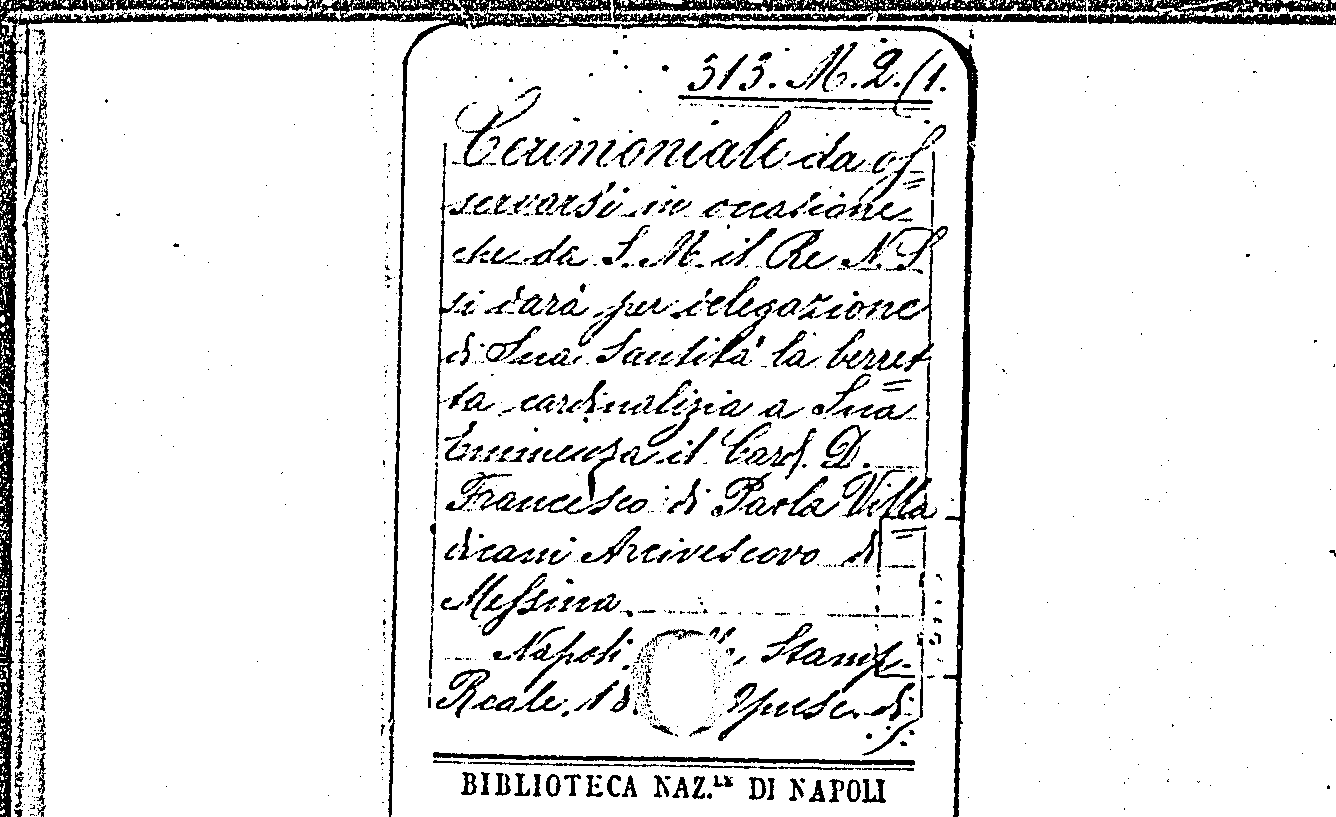 313. M. 2. (1.
Cerimoniale da os=
servarsi in occasione
che da S. M. il Re N. S.
si darà per delegazione
di Sua Santità la berret=
ta cardinalizia a Sua
Eminenza il Card. D.
Francesco di Paola Villa=
dicani Arcivescovo di
Messina.
Napoli, Stamp.
Reale, 18 di
BIBLIOTECA NAZ.LE DI NAPOLI